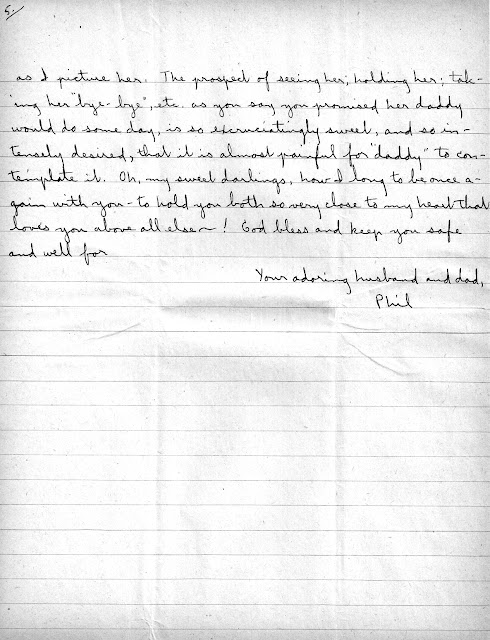 5.
as I picture her. The prospect of seeing her; holding her; tak-
ing her "bye-bye", etc. as you say you promised her daddy
would do some day, is so excruciatingly sweet, and so in-
tensely desired, that it is almost painful for "daddy" to con-
template it. Oh, my sweet darlings, how I long to be once a-
gain with you - to hold you both so very close to my heart that
loves you above all else~! God bless and keep you safe
and well for
Your adoring husband and dad,
Phil